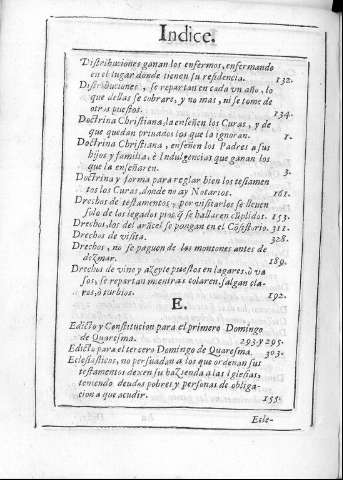 Indice.
Distribuciones ganan los enfermos, enfermando
en el lugar donde tienen su residencia. 132.
Distribuciones, se repartan en cada vn año, lo
que dellas se cobrare, y no mas, ni se tome de
otros puestos. 134.
Doctrina Christiana, la enseñen los Curas, y de
que quedan priuados los que la ignoran. 1.
Doctrina Christiana, enseñen los Padres a sus
hijos y familia, è Indulgencias que ganan los
que la enseñaren. 3.
Doctrina y forma para reglar bien los testamen
tos los Curas, donde no ay Notarios. 161.
Drechos de testamentos, por visitarlos se lleuen
solo de los legados pios, q̃ se hallarẽ cũplidos. 153.
Drechos, los del arãcel se pongan en el Cõsistorio. 311.
Drechos de visita. 328.
Drechos, no se paguen de los montones antes de
dezmar. 189.
Drechos de vino y azeyte puestos en lagares, ò va
sos, se repartan mientras colaren, salgan cla-
ros, ò turbios. 192.
E.
Edicto y Constitucion para el primero Domingo
de Quaresma. 293 y 295.
Edicto para el tercero Domingo de Quaresma. 303.
Eclesiasticos, no persuadan a los que ordenan sus
testamentos dexen su hazienda a las Iglesias,
teniendo deudos pobres y personas de obliga-
cion a que acudir. 155.
Ecle-